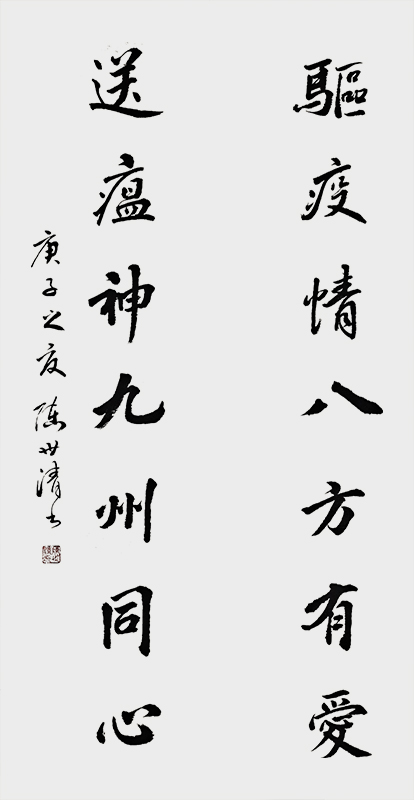 驅疫情八方有愛
送瘟神九州同心
庚子之夏陳世清书